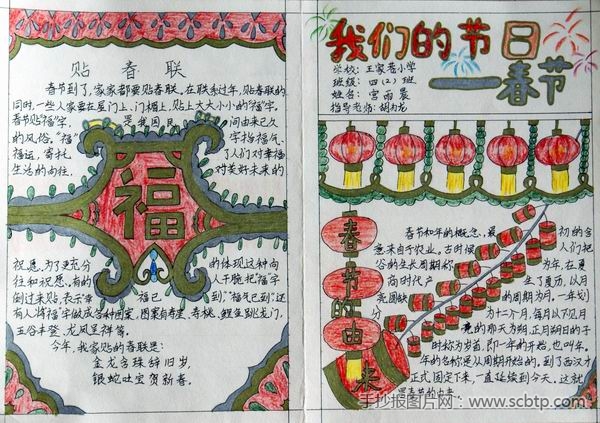 贴春联
春节到了,家家都要贴春联,在联系过年,贴春联的
同时,一些人家要在屋门上、门楣上,贴上大大小小的"福"字。
春节贴"福"字 是我国民 间由来已久
的风俗。"福" 字指福气、
福运,寄托 了人们对幸福
生活的向往, 对美好未来的
福
祝愿。为了更充分 的体现这种向
往和祝愿,有的 人干脆把"福"字
倒过来贴,表示"幸 福已 到""福气已到"还
有人将"福"字做成各种图案,图案有寿星、寿桃、鲤鱼跳龙门、
五谷丰登、龙凤呈祥等。
今年,我家贴的春联是:
金龙含珠辞旧岁,
银蛇吐宝贺新春。
我们的节日
——春节
学校:王家巷小学
班级:四(2)班
姓名:宫雨晨
指导老师:胡内龙
春节的由来
春节和年的概念,最 初的含
意来自于农业。古时候 人们把
谷的生长周期称 为年,在夏
商时代产 生了夏历,以月
亮圆缺 的周期为月,一年划
分 为十二个月,每月以不见月
亮的那天为朔,正月朔日的子
时称为岁首,即一年的开始,也叫年。
年的名称是从周期开始的,到了西汉才
正式固定下来,一直延续到今天。这就
是春节的由来。
手抄报图片网:www.scbtp.com